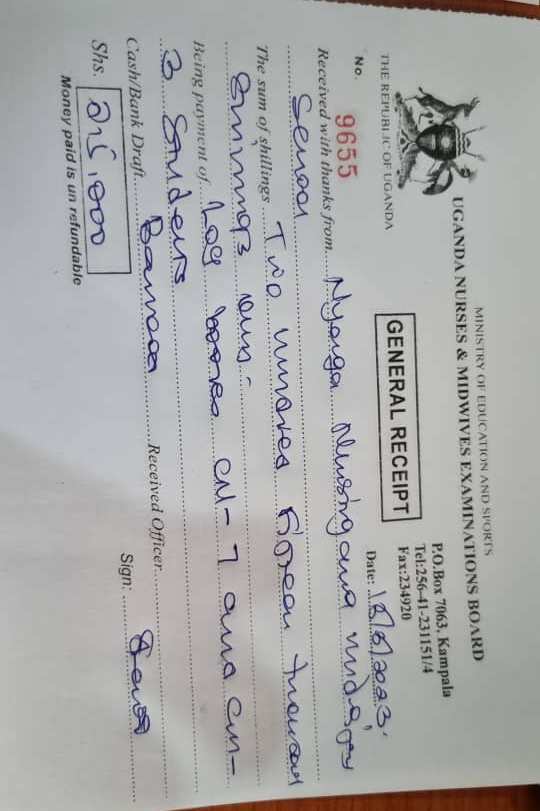 MINISTRY OF EDUCATION AND SPORTS
UGANDA NURSES & MIDWIVES EXAMINATIONS BOARD
P.O.Box 7063, Kampala
Tel:256-41-231151/4
Fax:234920
THE REPUBLIC OF UGANDA
GENERAL RECEIPT
No. 9655
Date:
Received with thanks from Nyenga Nursing and
School
The sum of shillings Two hundred fifteen thousand
shillings only.
Being payment of Log books CM-1 and CM-
3 Students
Cash/Bank Draft Received Officer
Shs. 215,000
Sign:
Money paid is un refundable